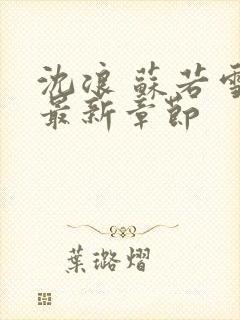 沈浪 蘇若雪
最新章節
葉璐熠